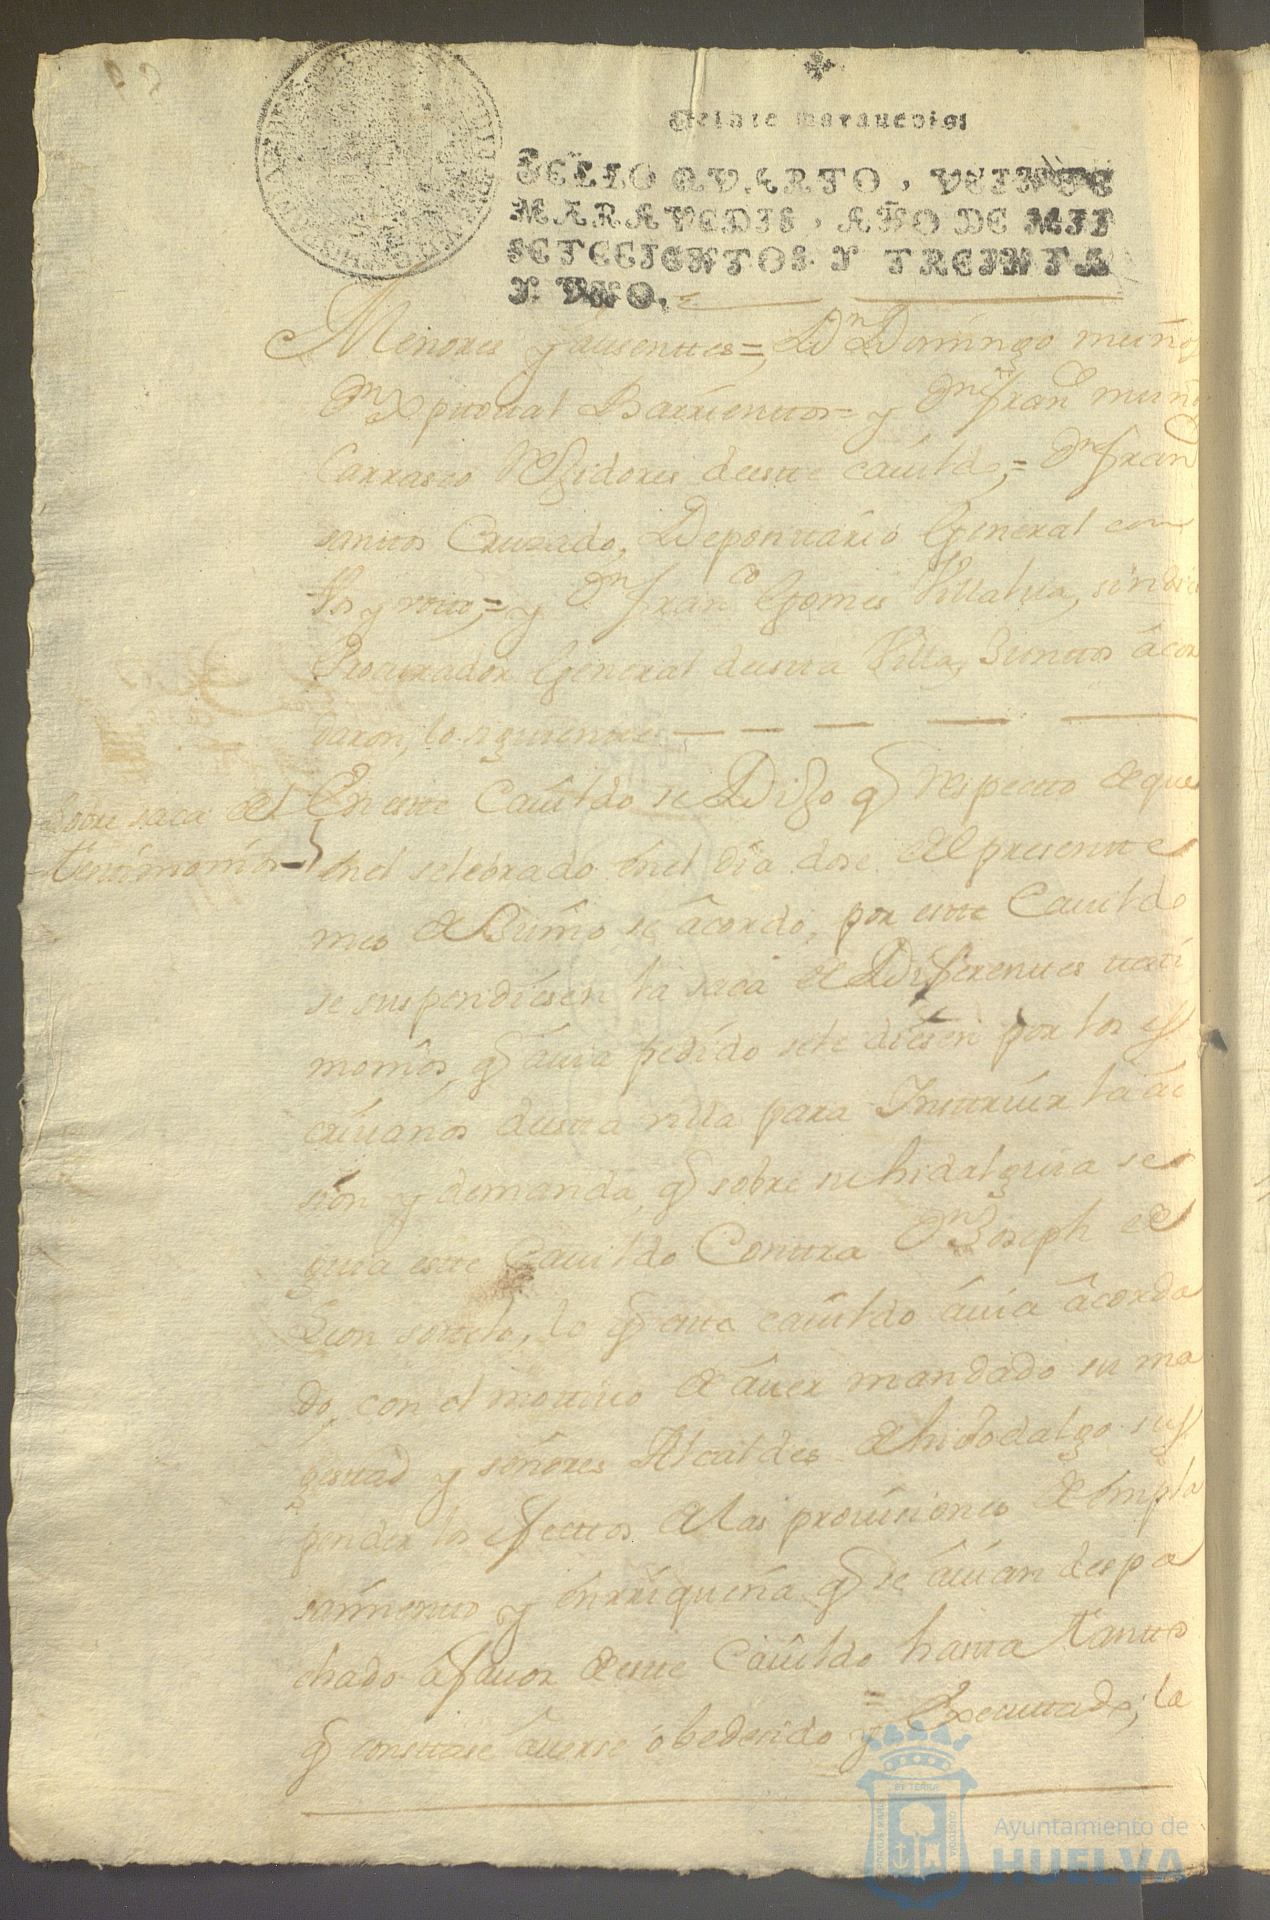 Veinte marauedis
SELLO QVARTO, VEINTE
MARAVEDIS, AÑO DE MIL
SETECIENTOS Y TREINTA
Y VNO.
Menores y ausenttes =, Dn Domingo muños
Dn Xptoual Barrienttos = y Dn Franco muño
Carrasco Rexidores desttte cauildo, = Dn Franco
santtos Cruzado, Deposittario General con
Vos y votto, = y Dn Franco Gomes Villalua, sindico
Procurador General desta Villa, Junttos acor
daron, lo siguientte
sobre saca del
testimonios
En estte Cauildo se Dixo q respecto de que
en el selebrado en el dia dose del presentte
mes de Junio se acordo, por estte Cauildo
se suspendiesen la saca de Diferenttes testi
monios, q auia pedido se le diesen por los es
criuanos desta villa para Instruir la ac
sion y demanda, q sobre su hidalguia se
guia estte Cauildo Conttra Dn Joseph de
Leon sottelo, lo q estte cauildo auia acorda
do, con el mottiuo de auer mandado su ma
gestad y señores Alcaldes de hijodalgo sus
pender los efecttos de las prouisiones de empla
samientto y enrriqueña q se auian despa
chado a fauor de estte Cauildo hasta tantto
q consttase auerse obedesido y Executtado, la
Ayuntamiento de
HUELVA